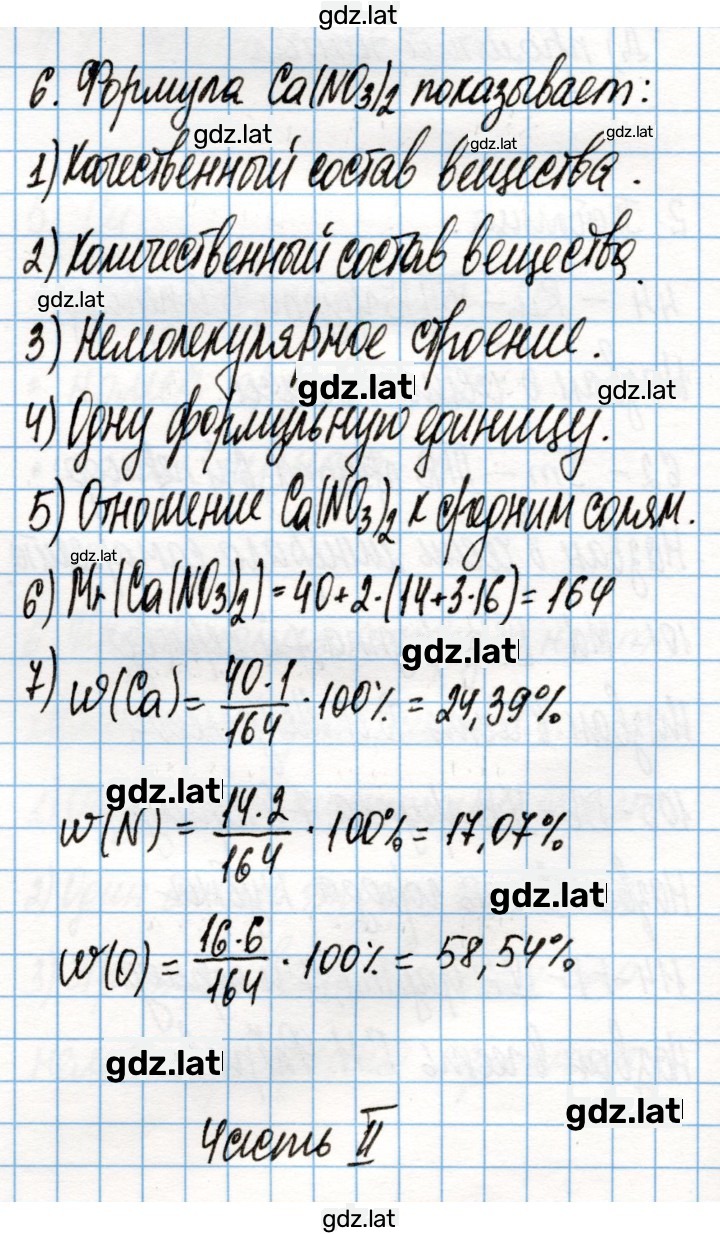 gdz.lat
6. Формула Ca(NO₃)₂ показывает:
gdz.lat gdz.lat gdz.lat
1) Качественный состав вещества.
2) Количественный состав вещества.
gdz.lat
3) Немолекулярное строение.
gdz.lat gdz.lat
4) Одну формульную единицу.
5) Отношение Ca(NO₃)₂ к средним солям.
gdz.lat
6) Mr(Ca(NO₃)₂) = 40+2·(14+3·16) = 164
gdz.lat
7) w(Ca) = 40·1/164 · 100% = 24,39%
gdz.lat
w(N) = 14·2/164 · 100% = 17,07%
gdz.lat
w(O) = 16·6/164 · 100% = 58,54%
gdz.lat
gdz.lat
Часть II
gdz.lat